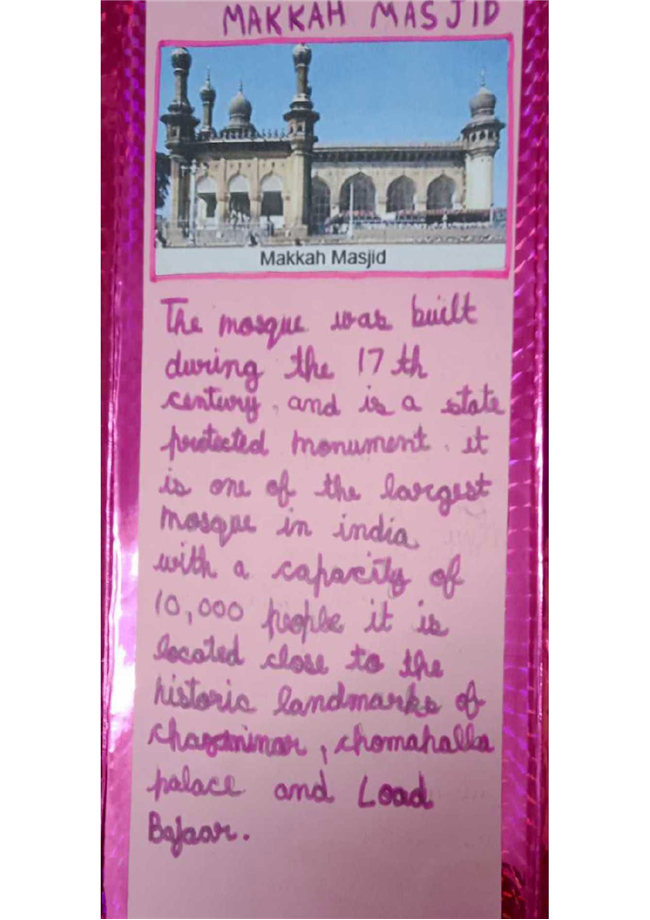 MAKKAH MASJID
Makkah Masjid
The mosque was built
during the 17 th
century, and is a state
protected monument. it
is one of the largest
mosque in india
with a capacity of
10,000 people it is
located close to the
historic landmarks of
charminar, chomahalla
palace and Load
Bajaar.